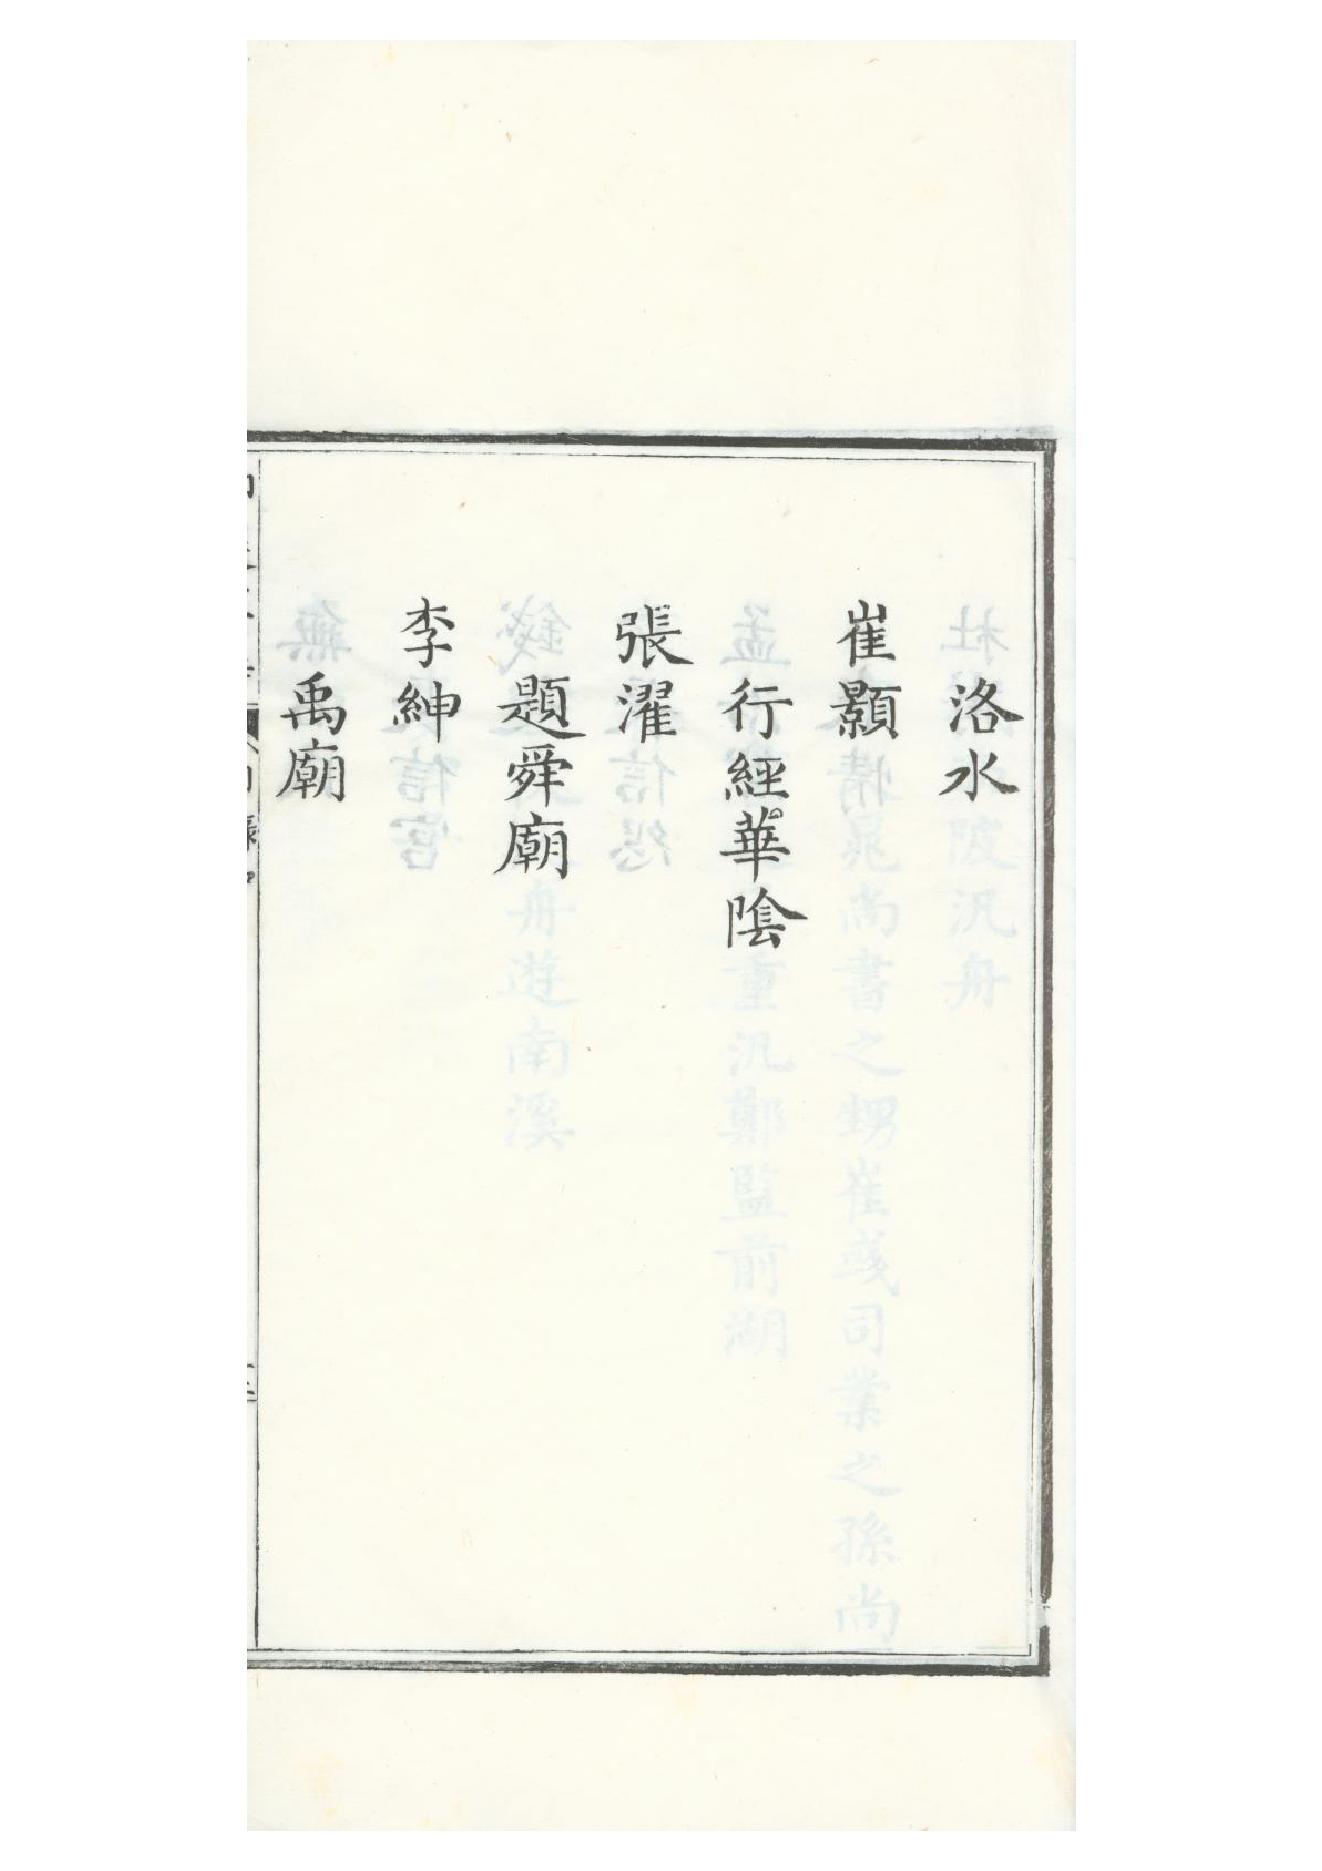 洛水
崔顥
行經華陰
張濯
題舜廟
李紳
禹廟